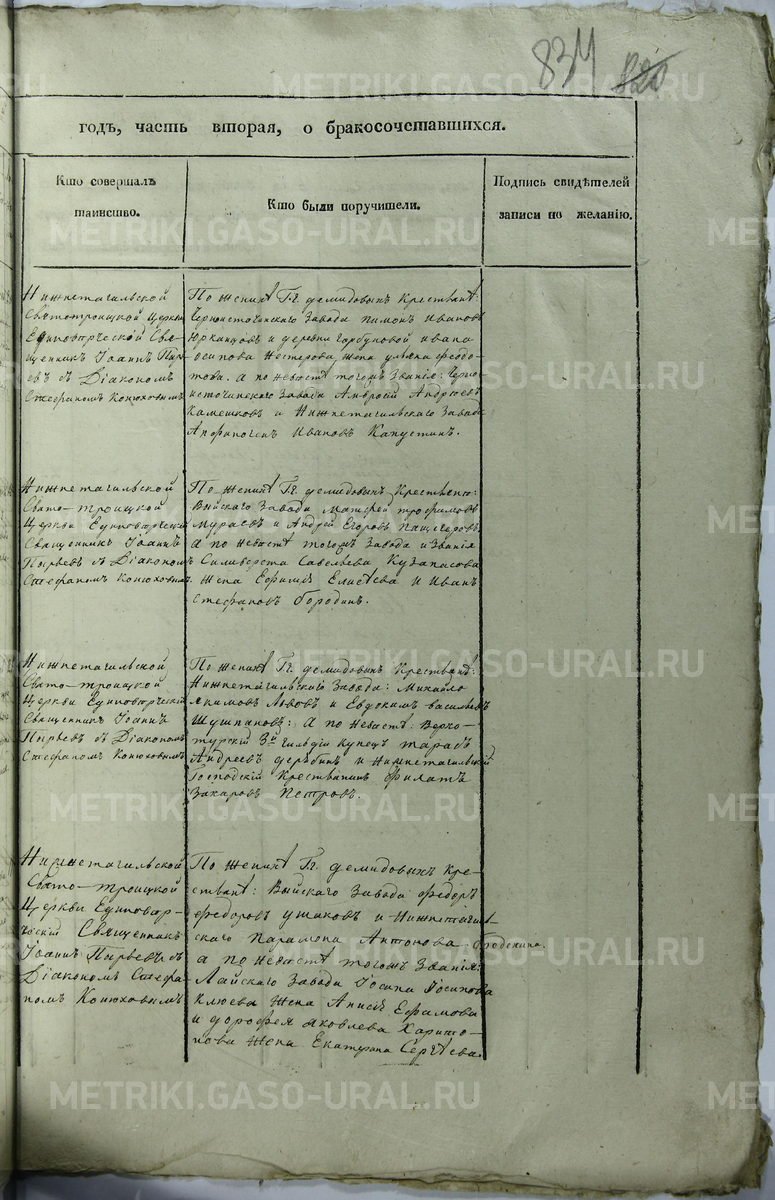 834 820
годъ, часть вторая, о бракосочетавшихся.
Кто совершалъ
таинство.
Кто были поручители.
Подпись свидѣтелей
записи по желанію.
Нижнетагильской
Святотроицкой Церкви
Единовѣрческой Свя-
щенникъ Іоаннъ Пыр-
евъ съ Діакономъ
Стефаномъ Конюховымъ
По женихѣ Гг. Демидовыхъ Крестьяне:
Черноисточинскаго Завода Пимонъ Ивановъ
и деревни Горбуновой Ивана
Осипова Нестерова жена Ульяна Федо-
това. А по невѣстѣ тогожъ Званія: Черно-
источинскаго Завода Амвросій Андреевъ
Камешковъ и Нижнетагильскаго Завода
Ивановъ Капустинъ.
Нижнетагильской
Свято-троицкой
Церкви Единовѣрческій
Священникъ Іоаннъ
Пырьевъ съ Діакономъ
Стефаномъ Конюховымъ.
По женихѣ Гг. Демидовыхъ Крестьяне:
Выйскаго Завода Матфей Трофимовъ
Мураевъ и Андрей Егоровъ
а по невѣстѣ тогожъ Завода и Званія
Силиверста Савельева
Жена Ефимія Елисѣева и Иванъ
Стефановъ Бородинъ.
Нижнетагильской
Свято-троицкой
Церкви Единовѣрческій
Священникъ Іоаннъ
Пырьевъ съ Діакономъ
Стефаномъ Конюховымъ
По женихѣ Гг. Демидовыхъ Крестьяне:
Нижнетагильскаго Завода: Михайло
Якимовъ и Евдокимъ Васильевъ
Шушпановъ: А по невѣстѣ: Верхо-
турскій 3й гильдіи купецъ Тарасъ
Андреевъ Дерябинъ и Нижнетагильскій
Господскій Крестьянинъ Филатъ
Захаровъ Петровъ.
Нижнетагильской
Свято-троицкой
Церкви Единовѣр-
ческій Священникъ
Іоаннъ Пырьевъ съ
Діакономъ Стефа-
номъ Конюховымъ
По женихѣ Гг. Демидовыхъ Кре-
стьяне: Выйскаго Завода Федоръ
Федоровъ Ушаковъ и Нижнетагиль-
скаго Парамона Антонова
а по невѣстѣ тогожъ Званія:
Лайскаго Завода Іосипа Іосипова
Клюева Жена Анисія Ефимова
и Дорофея Яковлева Харито-
нова Жена Екатерина Сергѣева.
METRIKI.GASO-URAL.RU